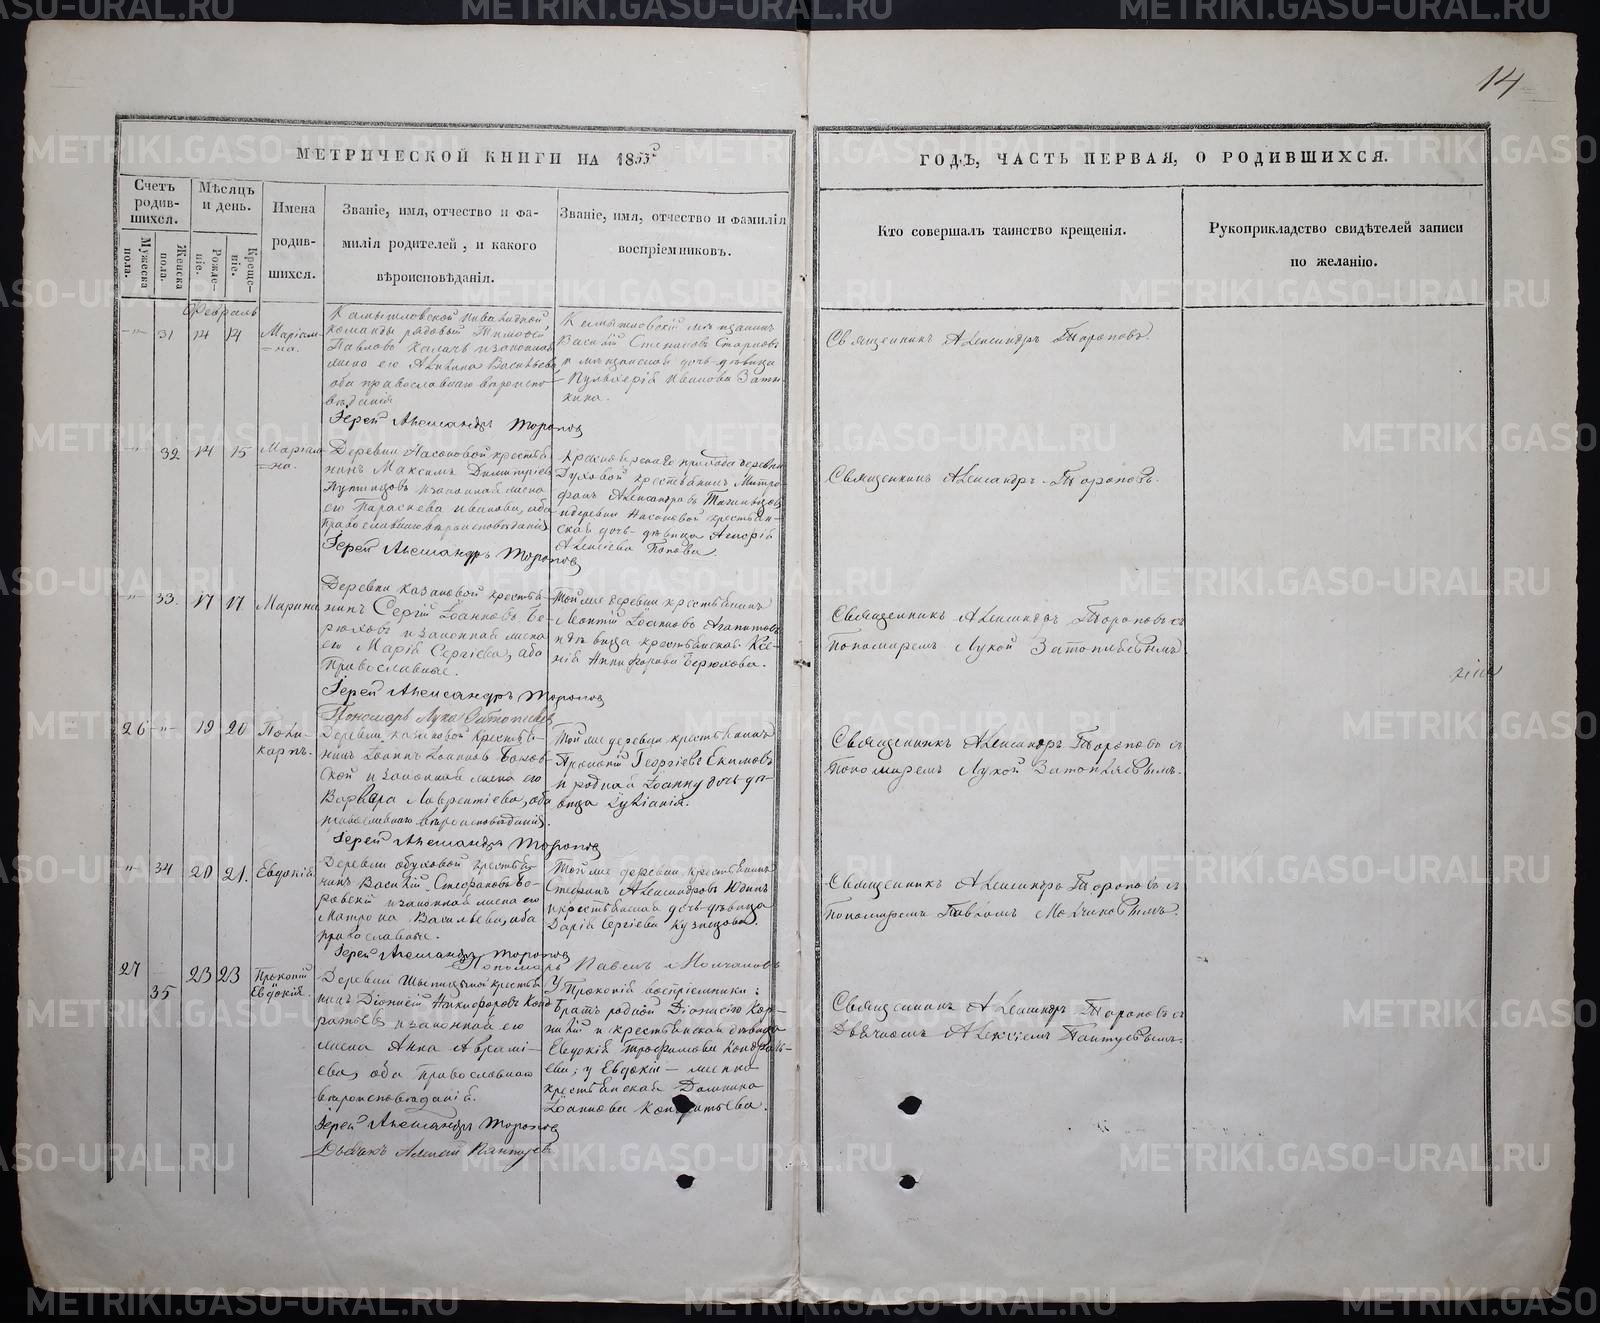 14
МЕТРИЧЕСКОЙ КНИГИ НА 1855
ГОДЪ, ЧАСТЬ ПЕРВАЯ, О РОДИВШИХСЯ.
Счетъ родив-шихся.
Мужеска пола.
Женска пола.
Мѣсяцъ и день.
Рожде-ніе.
Креще-ніе.
Имена
родив-
шихся.
Званіе, имя, отчество и фа-
милія родителей, и какого
вѣроисповѣданія.
Званіе, имя, отчество и фамилія
воспріемниковъ.
Кто совершалъ таинство крещенія.
Рукоприкладство свидѣтелей записи
по желанію.
Февраль
31 14 14 Маріам-
на.
Камышловской инвалидной
команды рядовой
Павловъ и законная
жена его Акилина Васильева
оба православнаго вѣроиспо-
вѣданія
Іерей Александръ Тороповъ
Камышловскій мѣщанинъ
Василій Степановъ
и мѣщанская дочь дѣвица
Пульхерія Иванова
Священникъ Александръ Тороповъ.
32 14 15 Маріам-
на.
Деревни Насоновой крестья-
нинъ Максимъ Димитріевъ
и законная жена
его Параскева Иванова, оба
православнаго вѣроисповѣданія
Іерей Александръ Тороповъ
прихода деревни
крестьянинъ Митро-
фанъ Александровъ
и деревни Насоновой крестьян-
ская дочь дѣвица
Алексіева Попова.
Священникъ Александръ Тороповъ.
33. 17 17 Марина
Деревни Казаковой крестья-
нинъ Сергій Іоанновъ Бе-
рюховъ и законная жена
его Марія Сергіева, оба
православные.
Іерей Александръ Тороповъ
Пономарь Лука
Той же деревни крестьянинъ
Леонтій Іоанновъ Агапитовъ
и дѣвица крестьянская Ксе-
нія Никифорова Берюхова.
Священникъ Александръ Тороповъ съ
Пономаремъ Лукой Затопляевымъ.
26 19 20 Поли-
карпъ.
Деревни Казаковой крестья-
нинъ Іоаннъ Іоанновъ
и законная жена его
Варвара Лаврентіева, оба
православнаго вѣроисповѣданія.
Іерей Александръ Тороповъ
Той же деревни крестьянинъ
Прокопій Георгіевъ Екимовъ
и родная Іоанну дочь дѣ-
вица Іуліанія.
Священникъ Александръ Тороповъ съ
Пономаремъ Лукой Затопляевымъ.
34 20 21. Евдокія
Деревни Обуховой крестья-
нинъ Василій Стефановъ Бо-
ровскій и законная жена его
Матрона Васильева, оба
православные.
Іерей Александръ Тороповъ
Пономарь Павелъ Молчановъ
Той же деревни крестьянинъ
Стефанъ Александровъ Юдинъ
и крестьянская дочь дѣвица
Дарія Сергіева Кузнецова.
Священникъ Александръ Тороповъ съ
Пономаремъ Павломъ Молчановымъ.
27 35 23 23 Прокопій
Евдокія.
Деревни крестья-
нинъ Діонисій Никифоровъ Конд-
ратьевъ и законная его
жена Анна Аврамі-
ева, оба православнаго
вѣроисповѣданія.
Іерей Александръ Тороповъ
Дьячекъ Алексій Пантуевъ
У Прокопія воспріемники:
братъ родной Діонисію Кор-
нилій и крестьянская дѣвица
Евдокія Трофимова Кондрать-
ева; у Евдокіи — женка
крестьянская Домнина
Іоаннова Кондратьева.
Священникъ Александръ Тороповъ съ
Дьячкомъ Алексіемъ Пантуевымъ.
METRIKI.GASO-URAL.RU